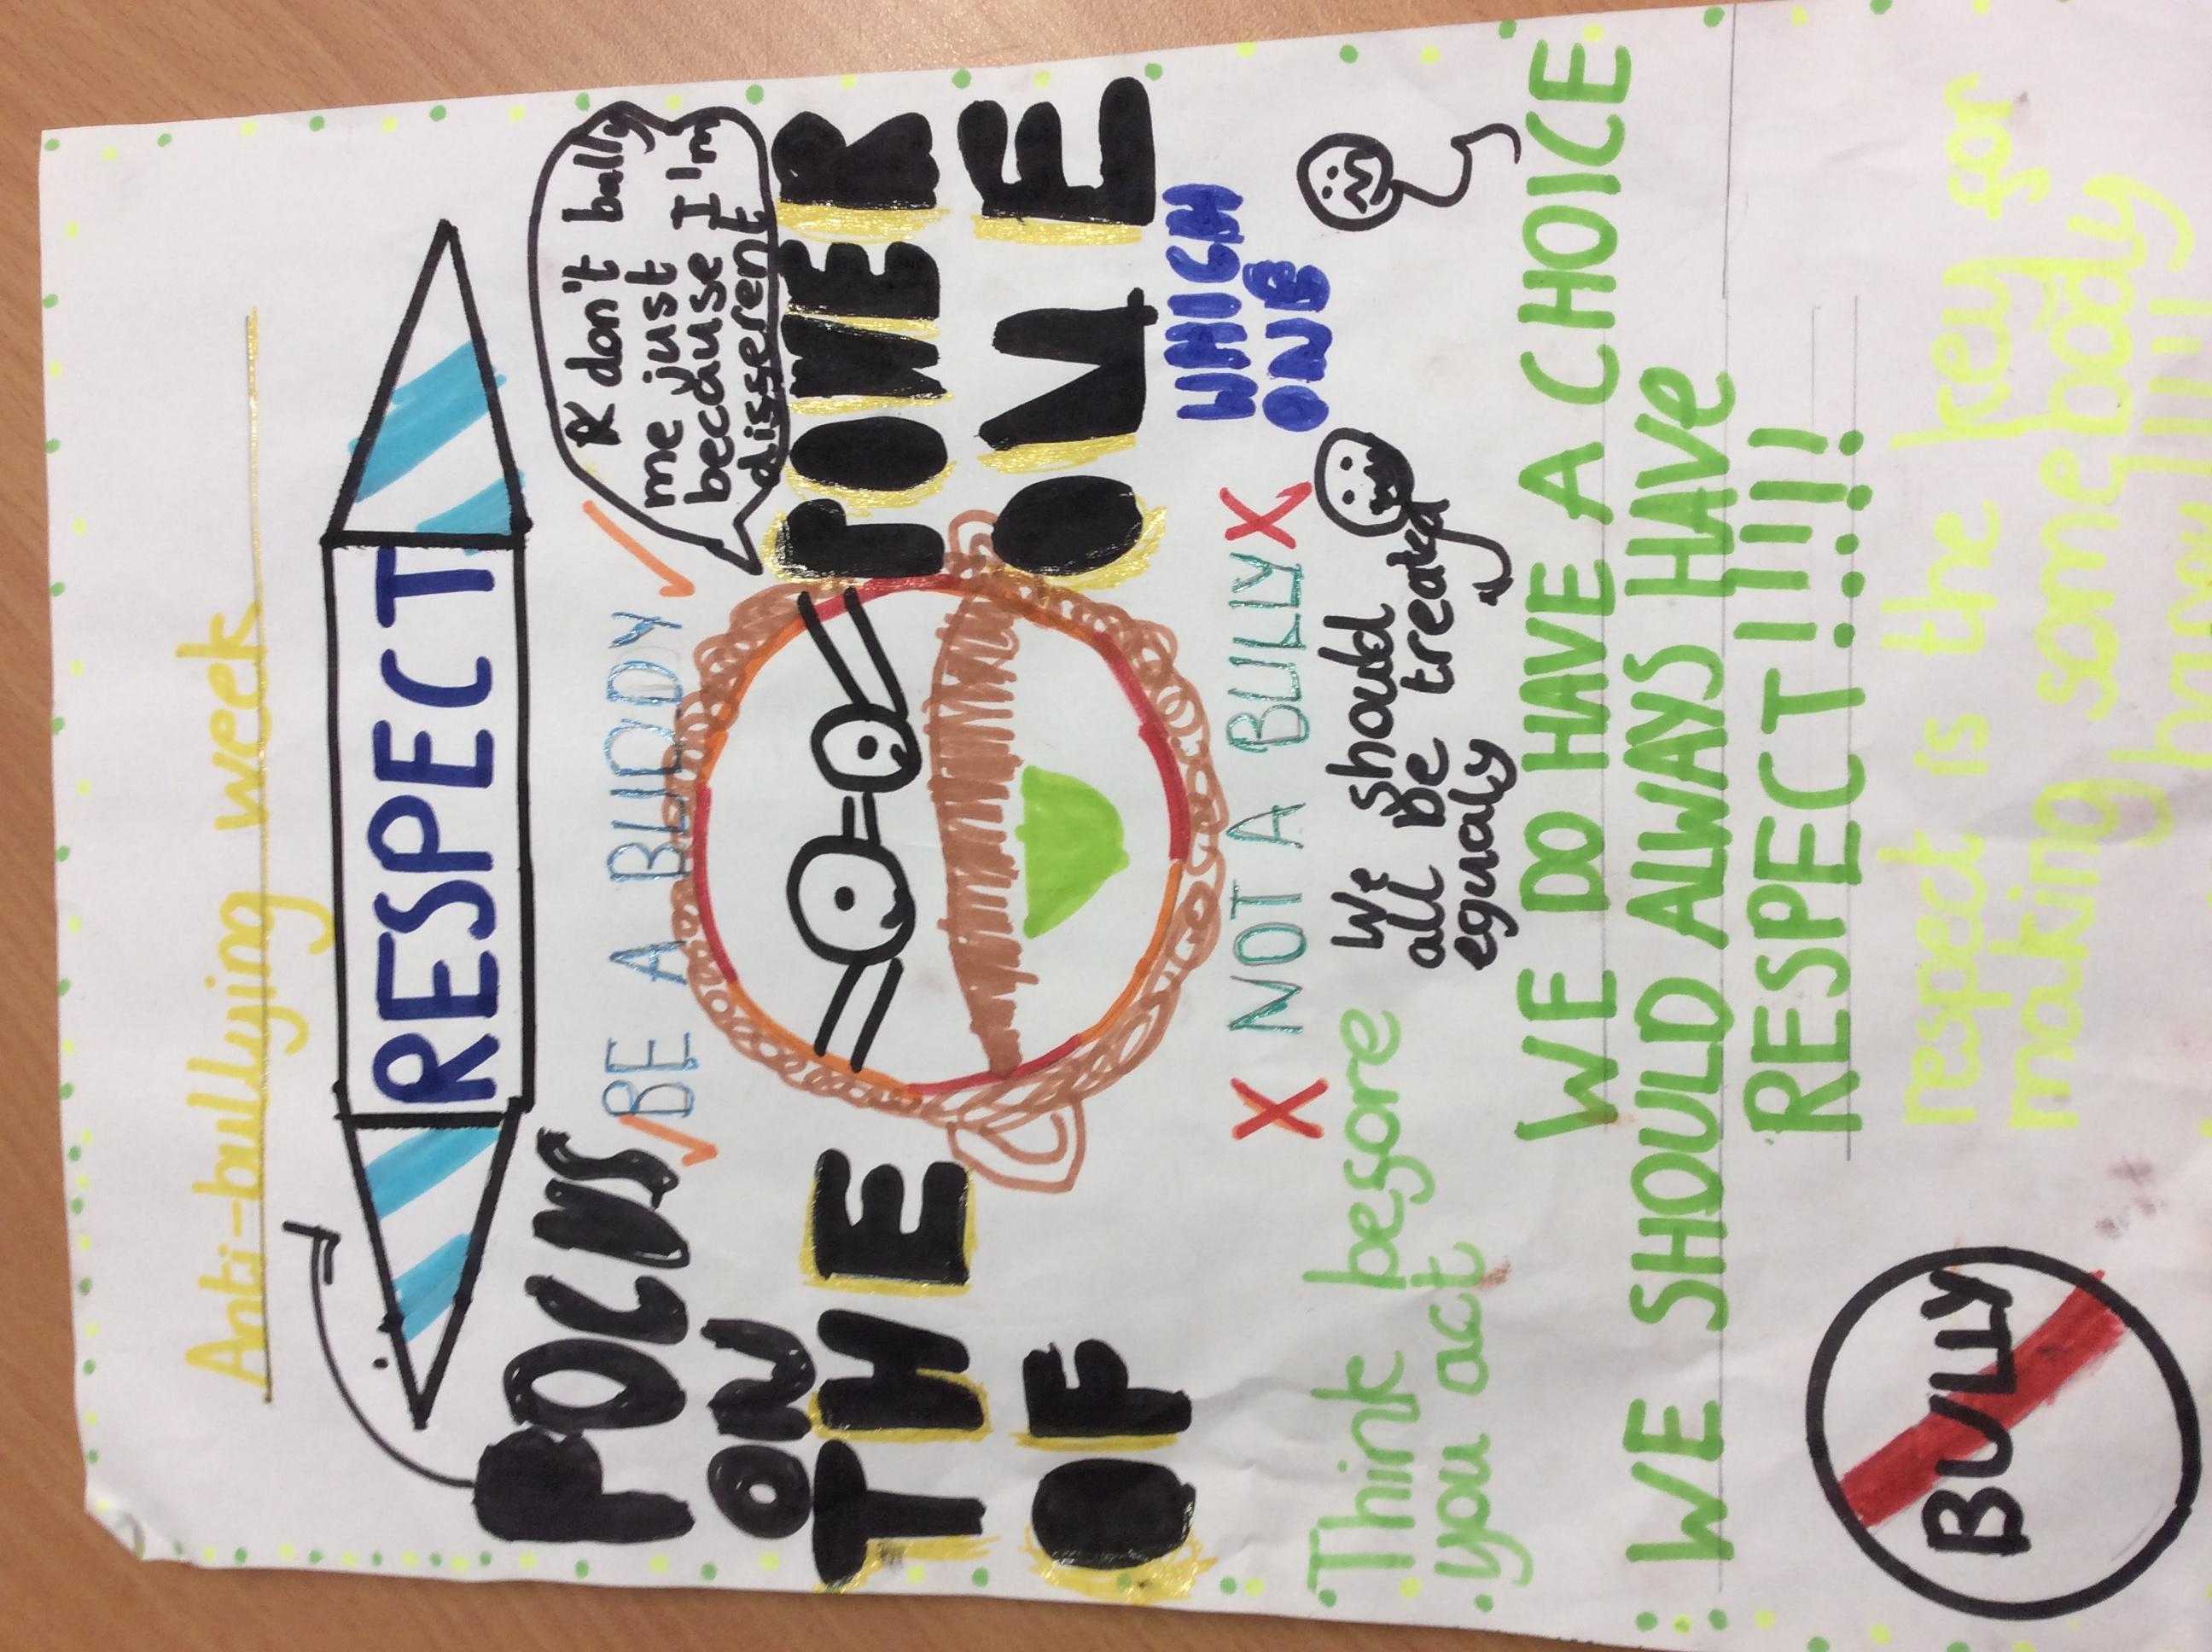 Anti-bullying week
RESPECT
FOCUS
ON
THE
POWER
OF
ONE
don't bully
me just
because I'm
disserent
BE A BUDDY
NOT A BULLY
WHICH
ONE
Think besore
you act
We should
all be treated
equaly
WE DO HAVE A CHOICE
WE SHOULD ALWAYS HAVE
RESPECT !!!!!
BULLY
respect is the key sor
making somebody
happy !!!!